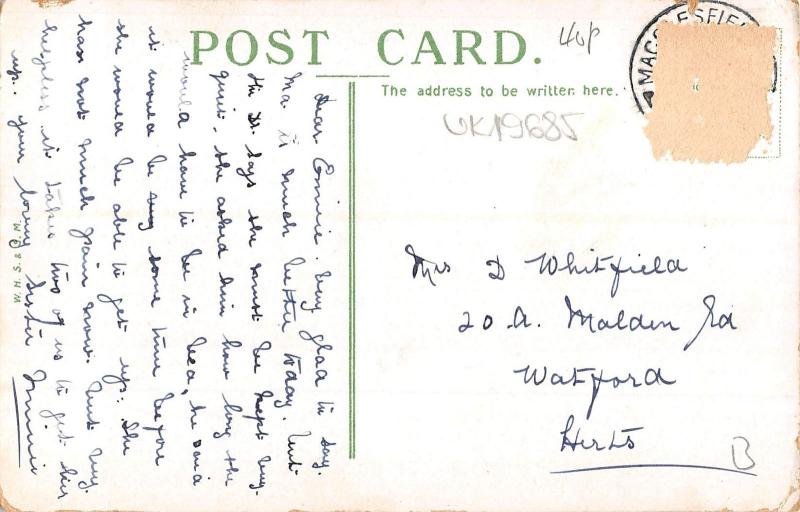 POST CARD.
40p
MACCLESFIEL
The address to be written here.
UK19685
Dear Ennie. Very glad to say.
Ma is much better today. but
the Dr. says she must be kept very
quiet, she asked him how long she
would have to be in bed, he said
it would be some time before
she would be able to get up. She
has not much pain now. but very
helpless it takes two of us to get her
up. Your loving Sister Minnie
W.H.S. & M.
Mrs D Whitfield
20 A. Malden Rd
Watford
Herts
B